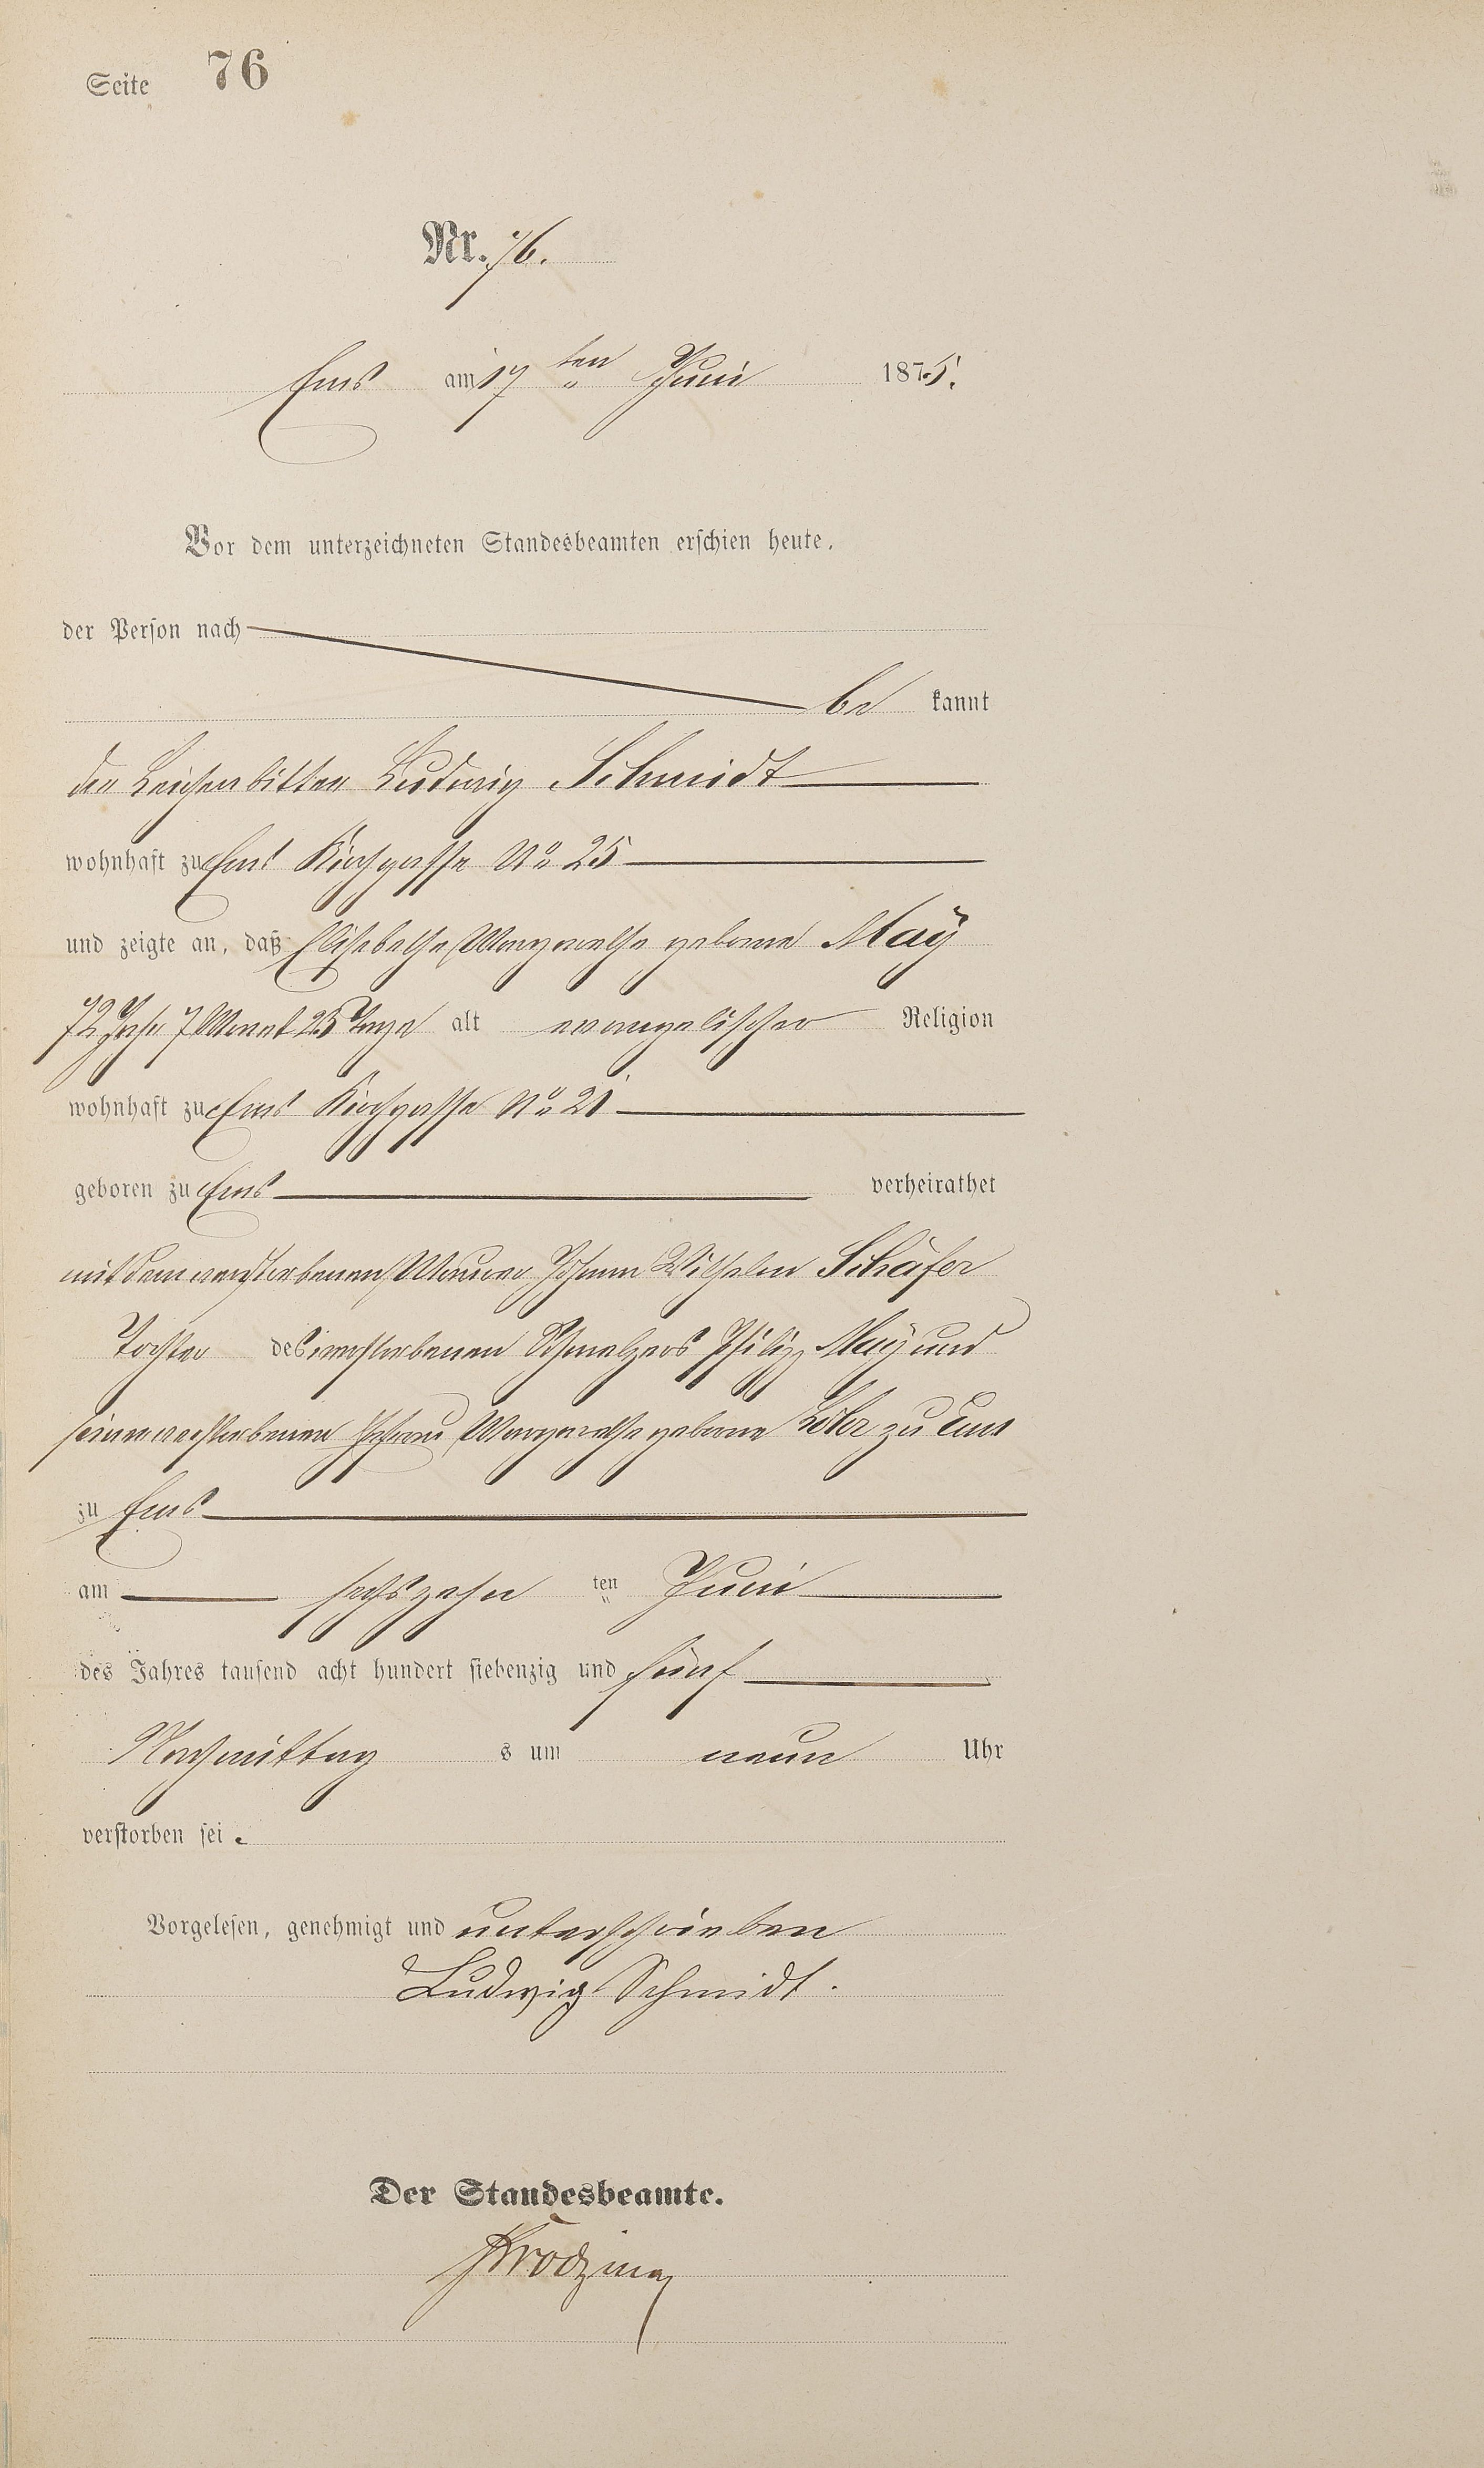 Seite 76
Nr. 76.
Ems am 17 ten Juni 1875.
Vor dem unterzeichneten Standesbeamten erschien heute,
der Person nach
be kannt
der Leichenbitter Ludwig Schmidt
wohnhaft zu Ems Kirchgasse No 25
und zeigte an, daß Elisabethe Margarethe geborne Maÿ
72 Jahr 7 Monat 25 Tage alt evangelischer Religion
wohnhaft zu Ems Kirchgasse No 21
geboren zu Ems verheirathet
mit dem verstorbenen Maurer Johann Wilhelm Schäfer
Tochter des verstorbenen Schmelzers Philipp Maÿ und
seiner verstorbenen Ehefrau Margarethe geborne zu Ems
zu Ems
am sechszehn ten Juni
des Jahres tausend acht hundert siebenzig und fünf
Nachmittag s um neun Uhr
verstorben sei.
Vorgelesen, genehmigt und unterschrieben
Ludwig Schmidt.
Der Standesbeamte.